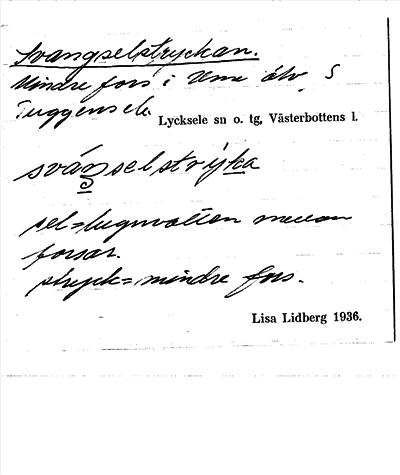 Svangselstryckan.
Mindre fors i Ume älv, S
Tuggensele
Lycksele sn o. tg, Västerbottens l.
svánselstrýka
sel = lugnvatten mellan
forsar.
stryck = mindre fors.
Lisa Lidberg 1936.